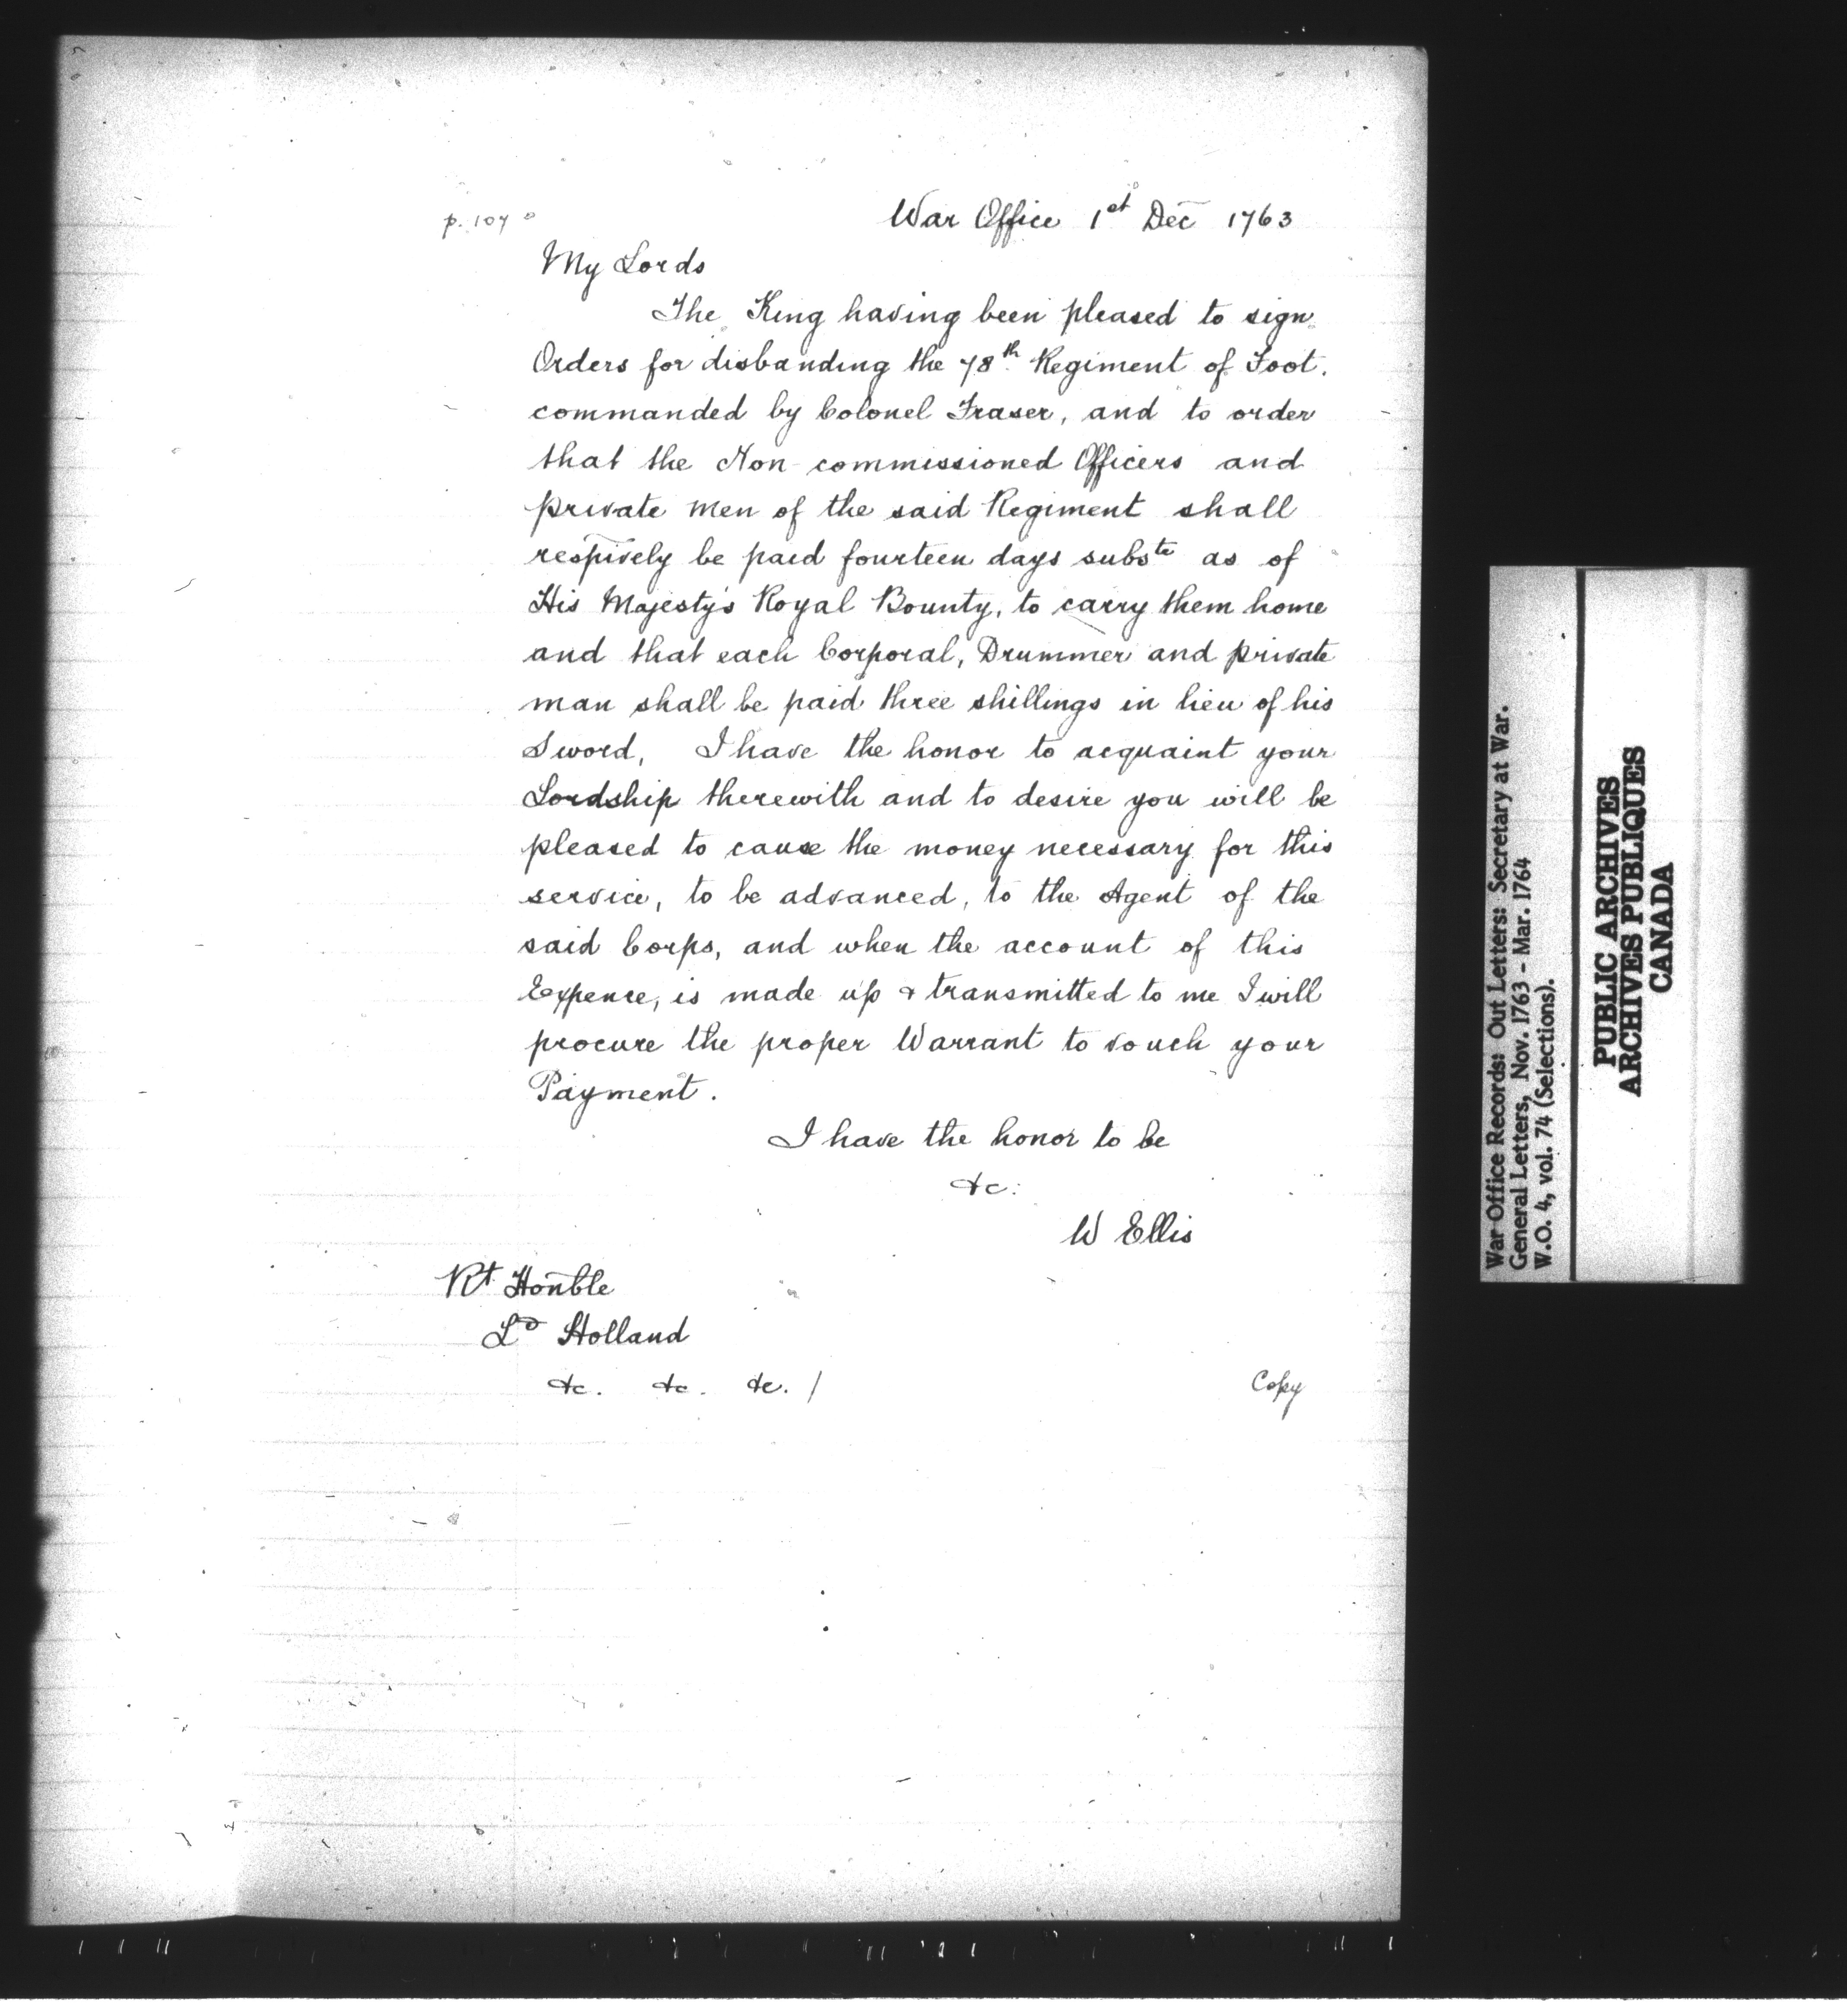 p. 107
War Office 1st Dec 1763
My Lords
The King having been pleased to sign
Orders for disbanding the 78th Regiment of Foot.
commanded by Colonel Fraser, and to order
that the Non-commissioned Officers and
private men of the said Regiment shall
respively be paid fourteen days subste as of
His Majesty's Royal Bounty, to carry them home
and that each Corporal, Drummer and private
man shall be paid three shillings in lieu of his
Sword, I have the honor to acquaint your
Lordship therewith and to desire you will be
pleased to cause the money necessary for this
service, to be advanced, to the Agent of the
said Corps, and when the account of this
Expence, is made up & transmitted to me I will
procure the proper Warrant to vouch your
Payment.
I have the honor to be
&c:
W Ellis
Rt Honble
Ld Holland
&c. &c. &c. /
Copy
War Office Records: Out Letters: Secretary at War.
General Letters, Nov. 1763 - Mar. 1764
W.O. 4, vol. 74 (Selections).
PUBLIC ARCHIVES
ARCHIVES PUBLIQUES
CANADA